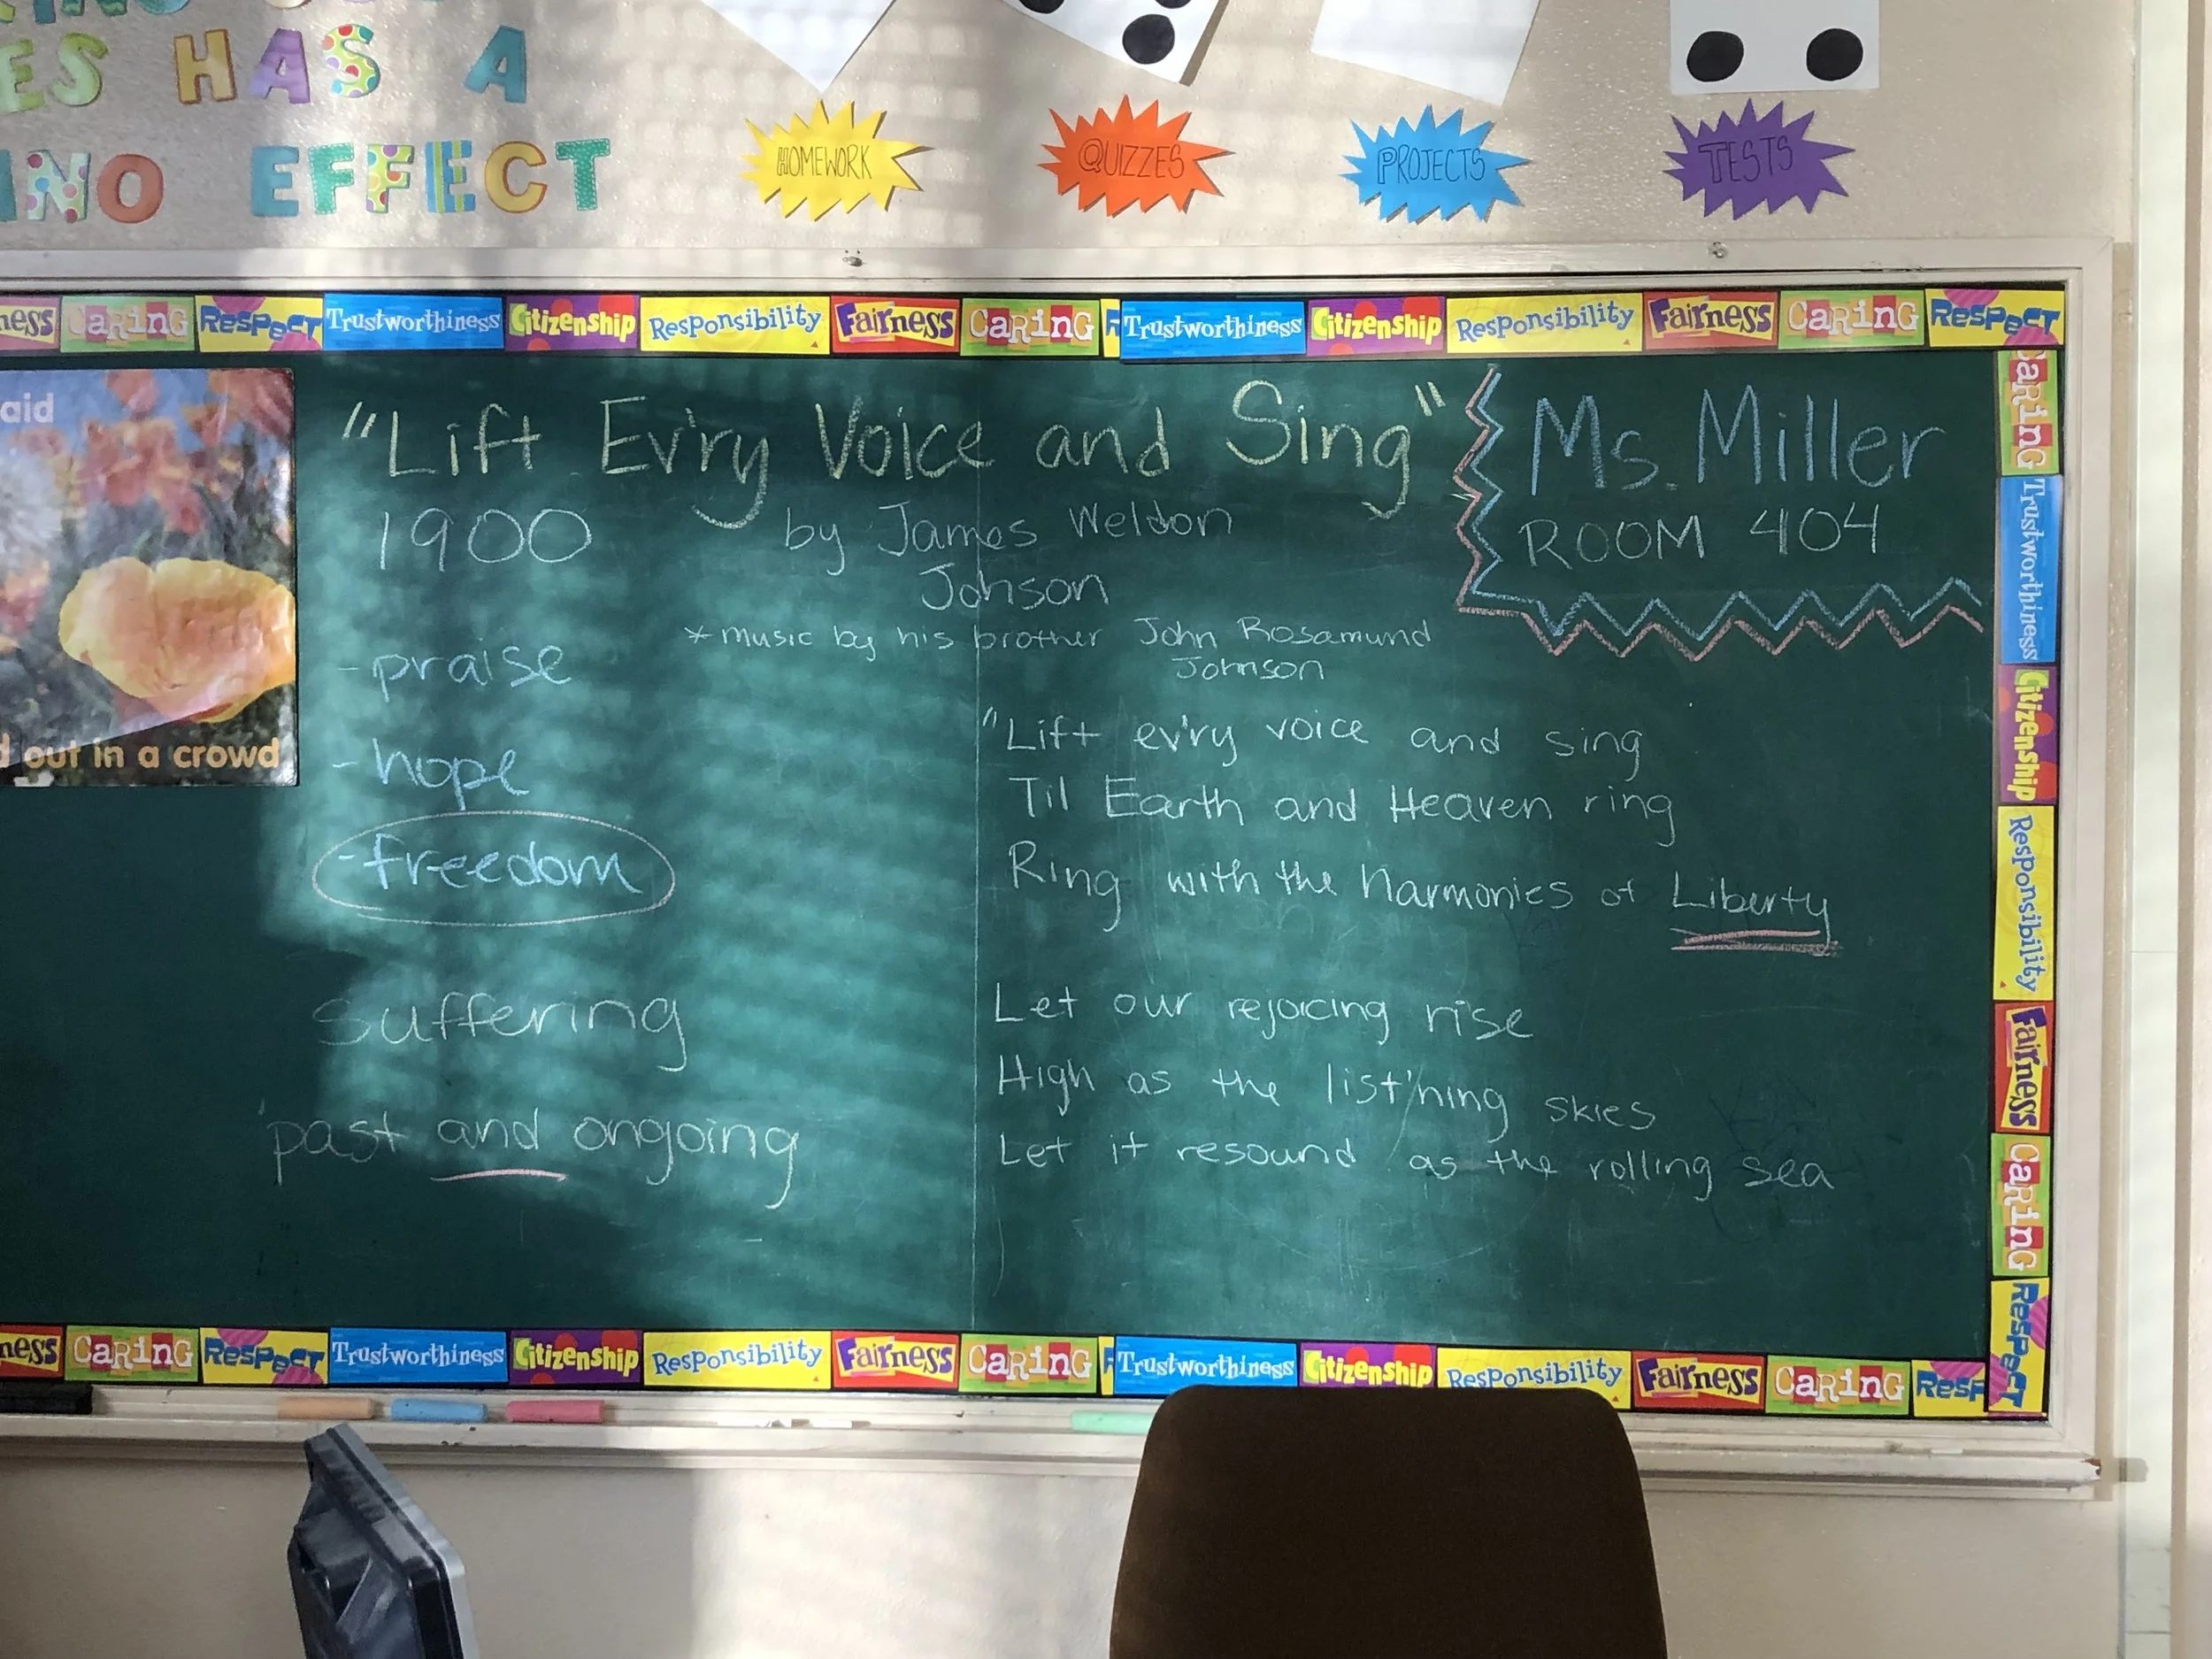 HAS A
EFFECT
HOMEWORK
QUIZZES
PROJECTS
TESTS
CaRinG Respect Trustworthiness Citizenship Responsibility Fairness CaRinG R Trustworthiness Citizenship Responsibility Fairness CaRinG Respect
aid
out in a crowd
"Lift Ev'ry Voice and Sing"
1900
by James Weldon
Johson
* music by his brother John Rosamund
Johnson
Ms. Miller
ROOM 404
- praise
- hope
- freedom
suffering
past and ongoing
"Lift ev'ry voice and sing
Til Earth and Heaven ring
Ring with the harmonies of Liberty
Let our rejoicing rise
High as the list'ning skies
Let it resound as the rolling sea
CaRinG
Trustworthiness
Citizenship
Responsibility
Fairness
CaRinG
Respect
ness CaRinG Respect Trustworthiness Citizenship Responsibility Fairness CaRinG R Trustworthiness Citizenship Responsibility Fairness CaRinG Resp